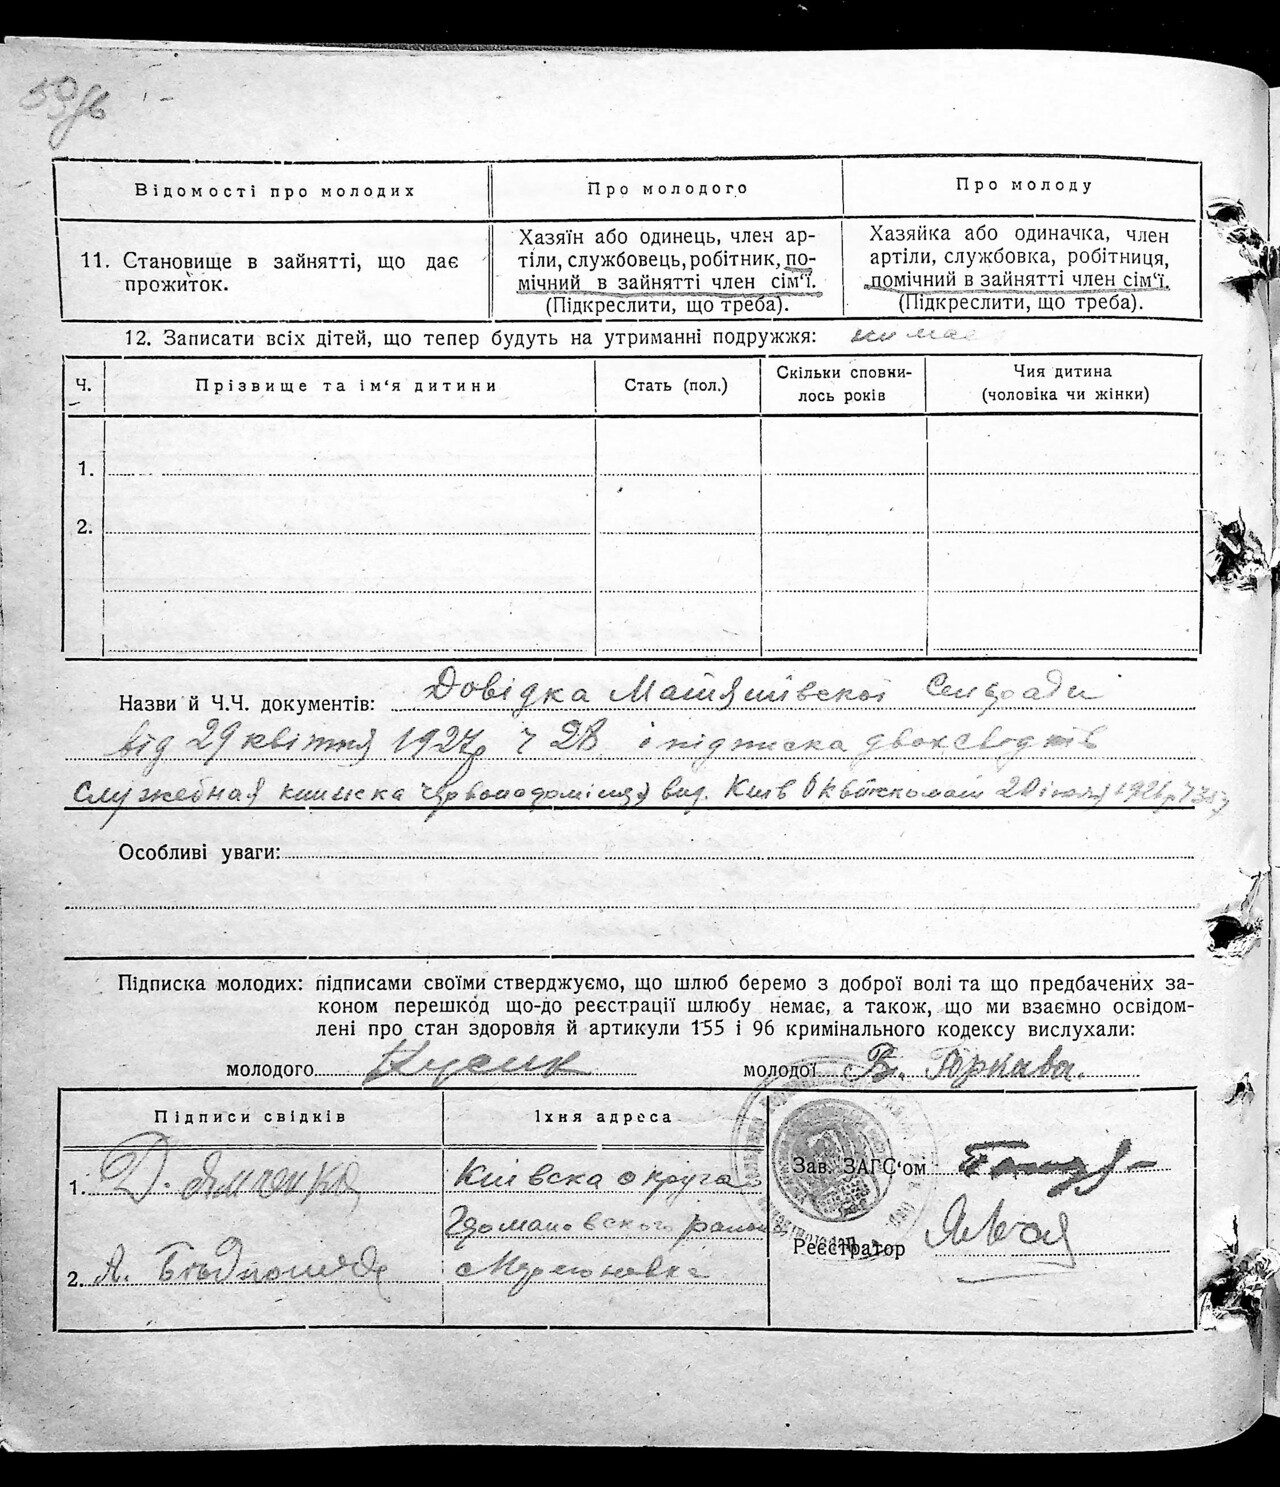 59зв
Відомості про молодих
Про молодого
Про молоду
11. Становище в зайнятті, що дає
прожиток.
Хазяїн або одинець, член ар-
тіли, службовець, робітник, по-
мічний в зайнятті член сім'ї.
(Підкреслити, що треба).
Хазяйка або одиначка, член
артіли, службовка, робітниця,
помічний в зайнятті член сім'ї.
(Підкреслити, що треба).
12. Записати всіх дітей, що тепер будуть на утриманні подружжя: нимає
Ч.
Прізвище та ім'я дитини
Стать (пол.)
Скільки сповни-
лось років
Чия дитина
(чоловіка чи жінки)
1.
2.
Назви й Ч.Ч. документів: Довідка Матяшівскої Сельради
від 29 квітня 1927р ч 28 і підписка двох свідків
Служебная книжска вид. Київ 20 1926р
Особливі уваги:
Підписка молодих: підписами своїми стверджуємо, що шлюб беремо з доброї волі та що предбачених за-
коном перешкод що-до реєстрації шлюбу немає, а також, що ми взаємно освідом-
лені про стан здоровля й артикули 155 і 96 кримінального кодексу вислухали:
молодого Кусик
молодої В. Горкава.
Підписи свідків
Їхня адреса
1. Д. Ямченко
Київска округа
району
2. А.
Зав. ЗАГС'ом
Реєстратор